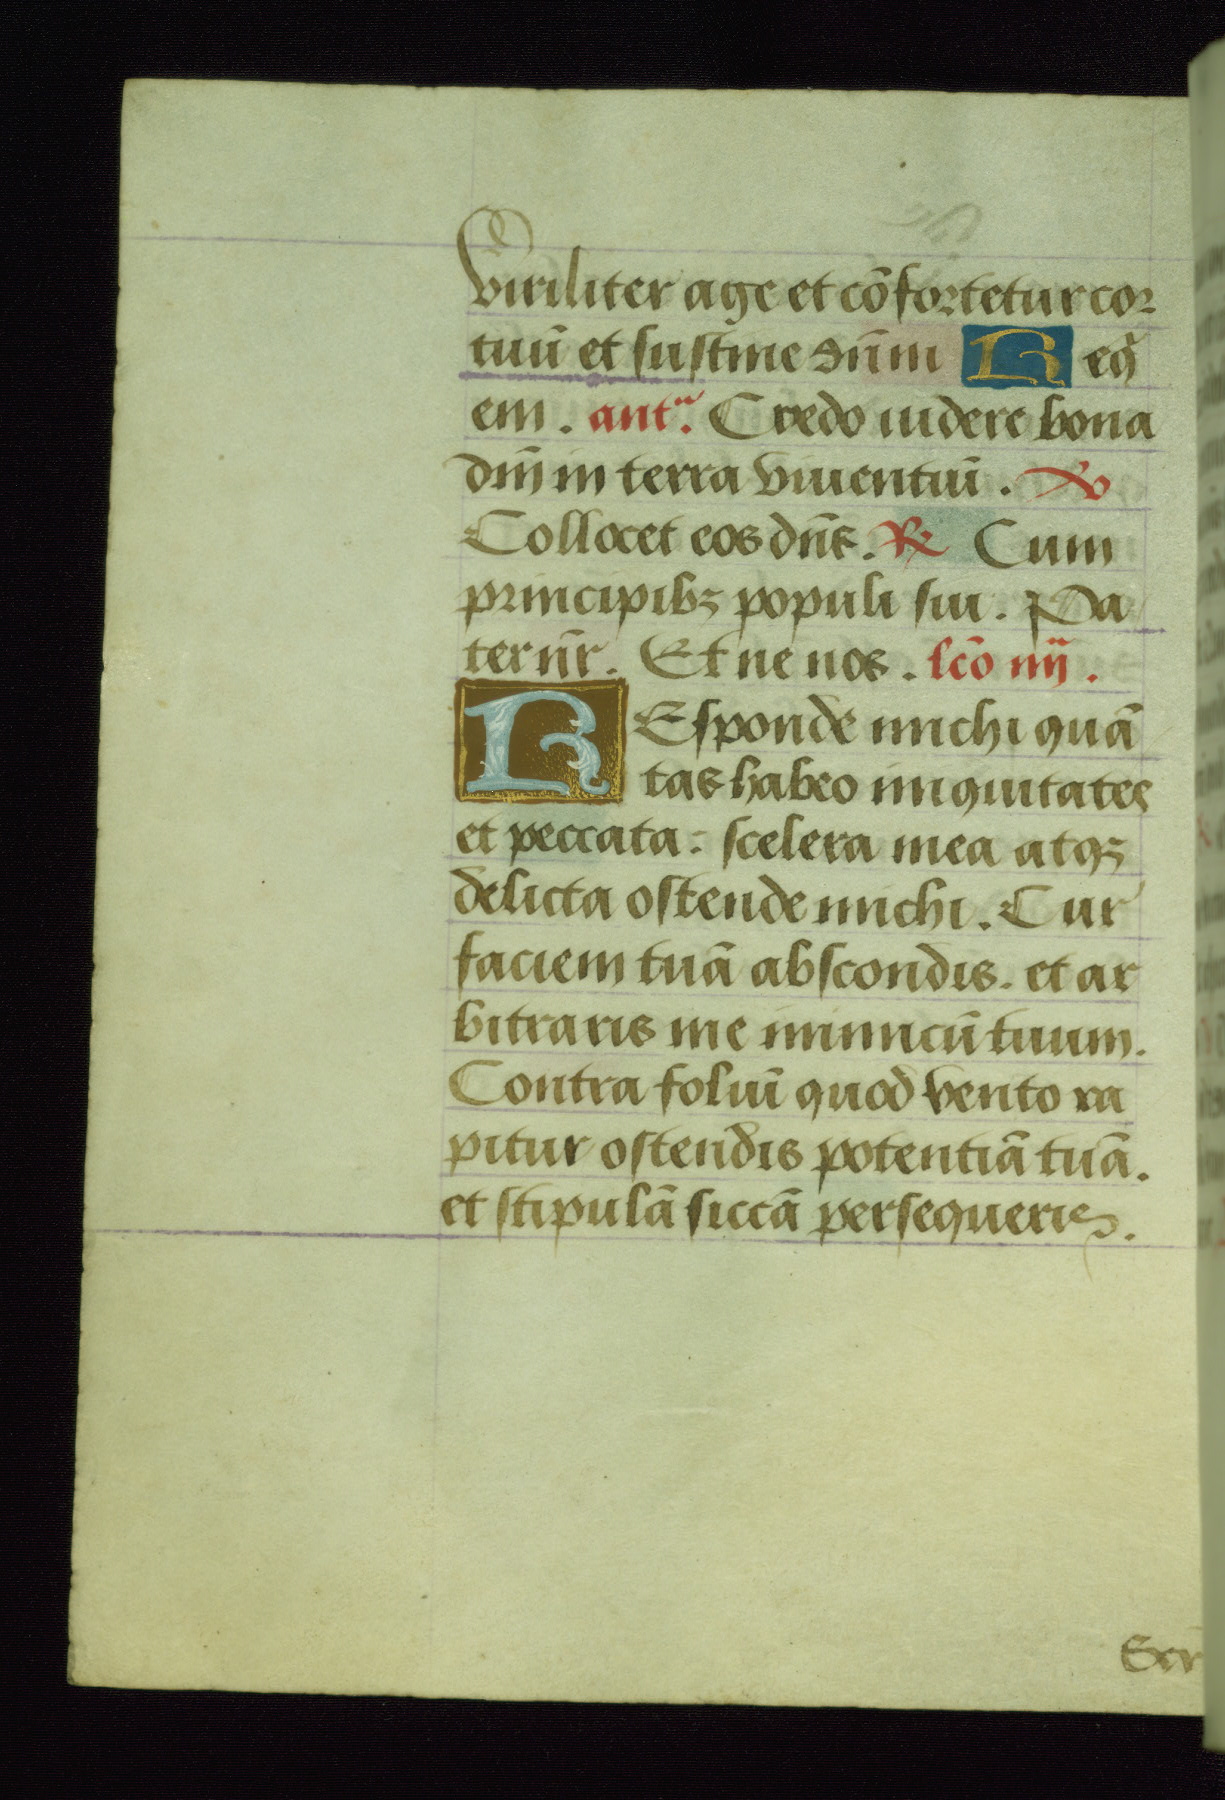 Viriliter age et cõfortetur cor
tuũ et sustine dñm Req̃
em. antᵃ. Credo uidere bona
dñi in terra viuentiũ. ℣
Collocet eos dñs. ℟ Cum
principibꝫ populi sui. Pa
ter nr̃. Et ne nos. lcõ iiij.
REsponde michi quã
tas habeo iniquitates
et peccata: scelera mea atqꝫ
delicta ostende michi. Cur
faciem tuã abscondis. et ar
bitraris me inimicũ tuum.
Contra foliũ quod vento ra
pitur ostendis potentiã tuã.
et stipulã siccã persequeris.